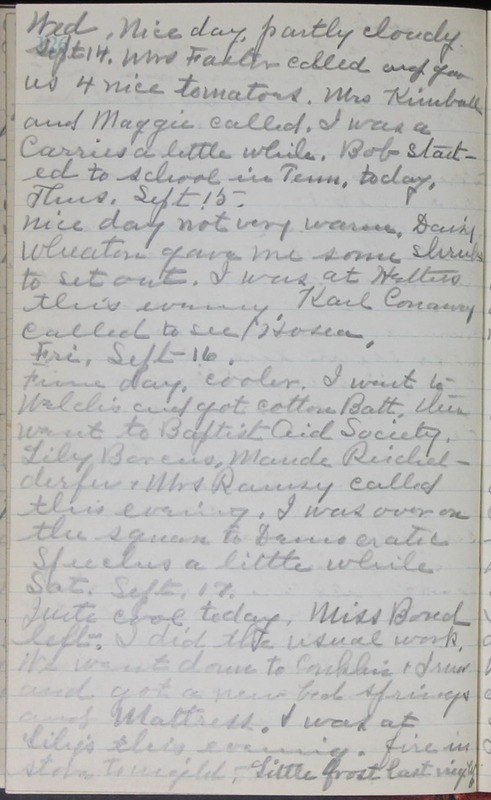 Wed, Nice day, partly cloudy
Sept 14. Mrs called and gave
us 4 nice tomatoes. Mrs Kimball
and Maggie called. I was a
Carries a little while. Bob Start-
ed to school in Tenn, today,
Thus. Sept 15.
nice day not very warm. Daisy
Wheaton gave me some shrubs
to set out. I was at
this evening. Karl Conaway
called to see Hosea,
Fri, Sept 16.
Fine day, cooler. I went to
and got cotton Batt, then
went to Baptist Aid Society.
Lily Maude
+ Mrs Ramsy called
this evening. I was over on
the square to Democratic
a little while
Sat. Sept, 17.
Quite cool today, Miss Bond
left. I did the usual work.
We went down to Conklin +
and got a new bed springs
and Mattress. I was at
Lilys this evening. fire in
stove tonight, Little frost last